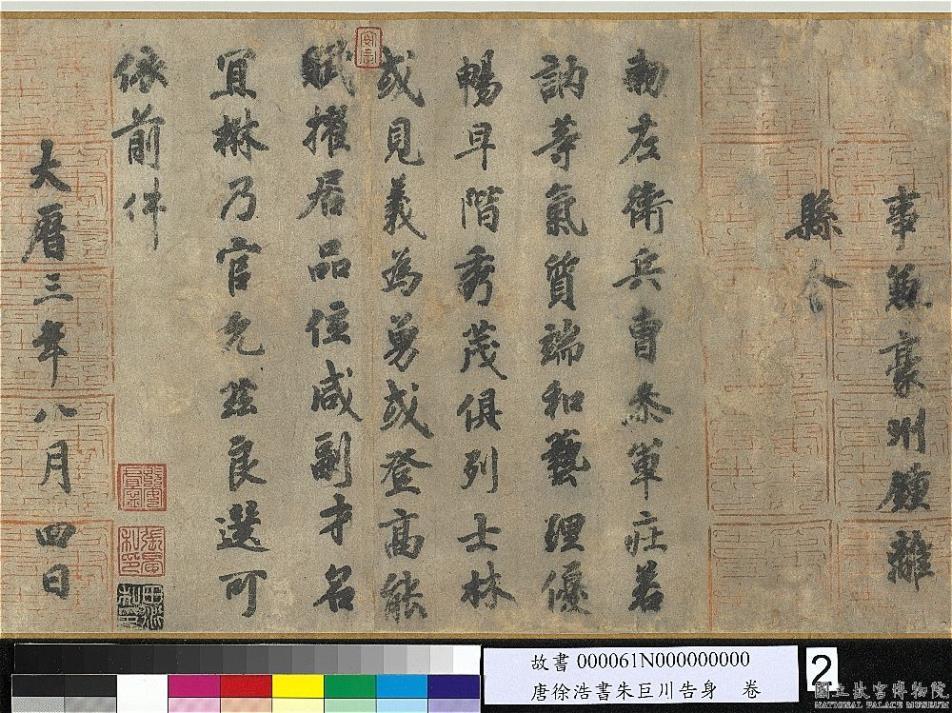 事兼豪州鍾離
縣令
勑左衛兵曹叅軍莊若
訥等氣質端和藝理優
暢早階秀茂俱列士林
或見義為勇或登高能
賦擢居品位咸副才名
宜楙乃官允茲良選可
依前件
大曆三年八月四日
故書 000061N000000000
唐徐浩書朱巨川告身 卷
2
國立故宮博物院
NATIONAL PALACE MUSEUM